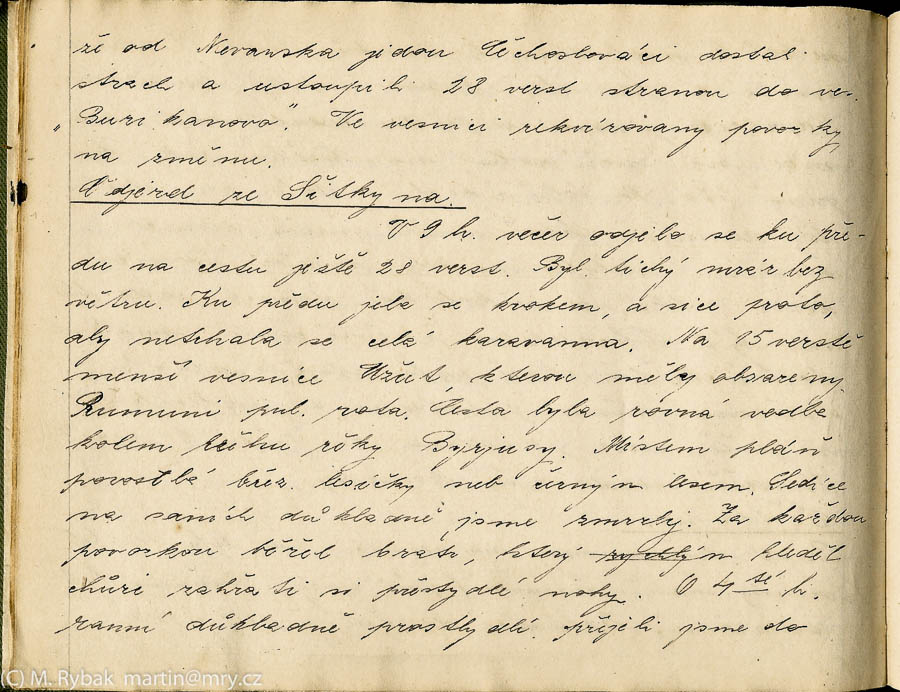 že od Nevanska jedou Čechoslováci dostali
strach a ustoupili 28 verst stranou do ves.
„Burikanovo". Ve vesnici rekvírovány povozky
na změnu.
Odjezd ze Šitky na.
V 9 h. večer odjelo se ku pře-
du na cestu ještě 28 verst. Byl tichý mráz bez
větru. Ku předu jelo se krokem, a sice proto,
aby netrhala se celá karavanna. Na 15 verstě
menší vesnice Užut, kterou měly obsazeny
Rumuni pul. rota. Cesta byla rovná vedla
kolem břehu řéky Byrjusy. Místem pláň
porostlá bříz. lesíčky neb černým lesem. Sedíce
na saních důkladně jsme zmrzly. Za každou
povozkou běžel bratr, který rychlým hleděl
chůzí zahřáti si přestydlé nohy. O 4té h.
ranní důkladně prostydlí přijeli jsme do
(C) M. Rybak martin@mry.cz